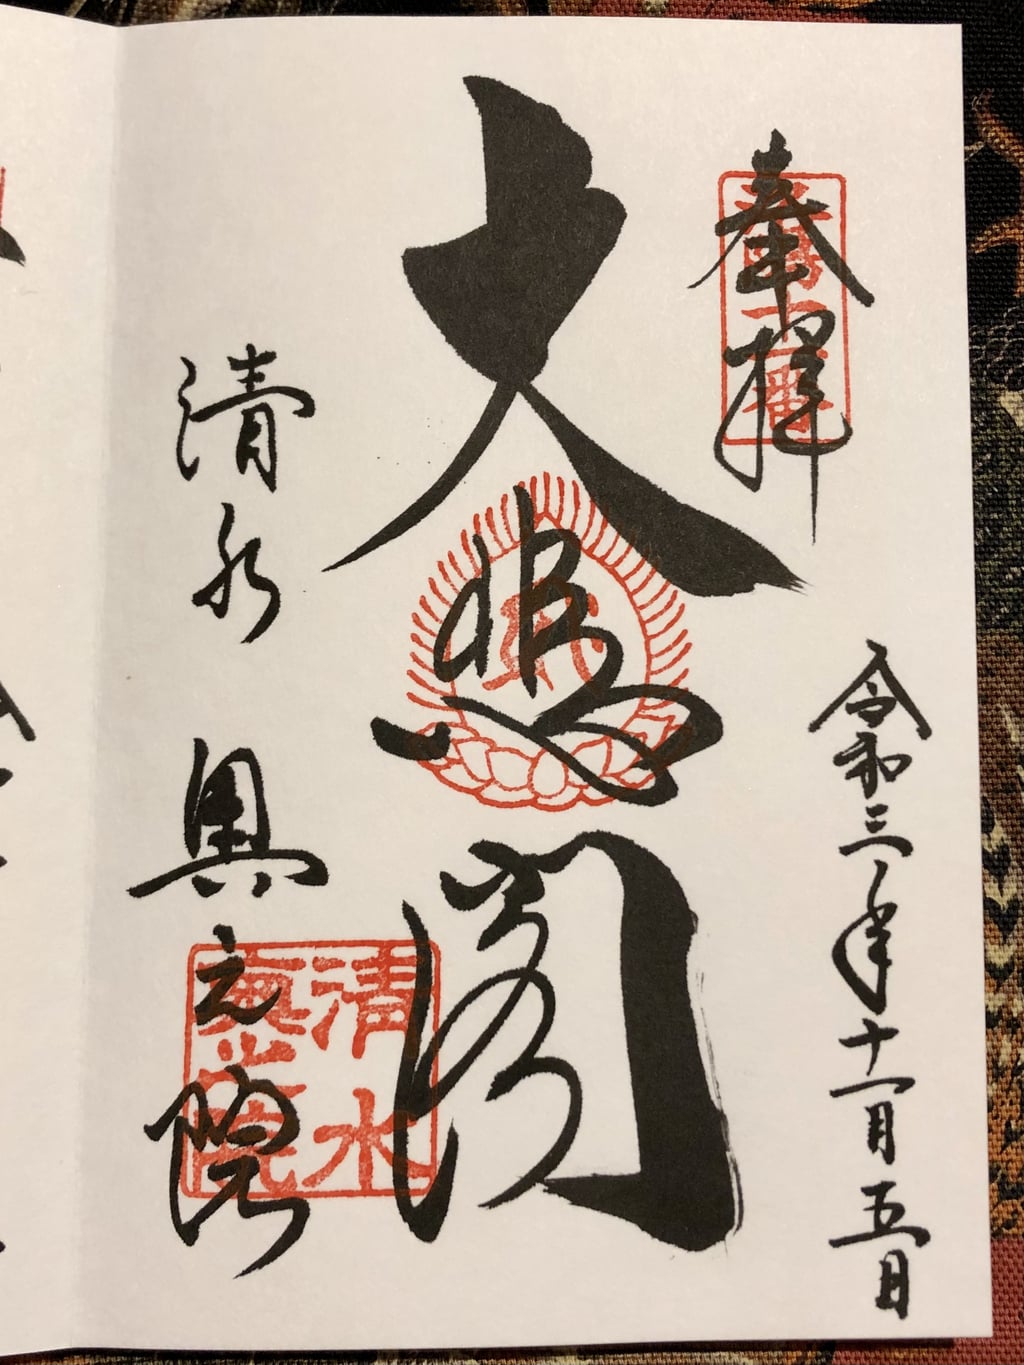 奉拝
洛陽十一番
令和三年十一月五日
大悲閣
清水
奥之院
清水
奥之院